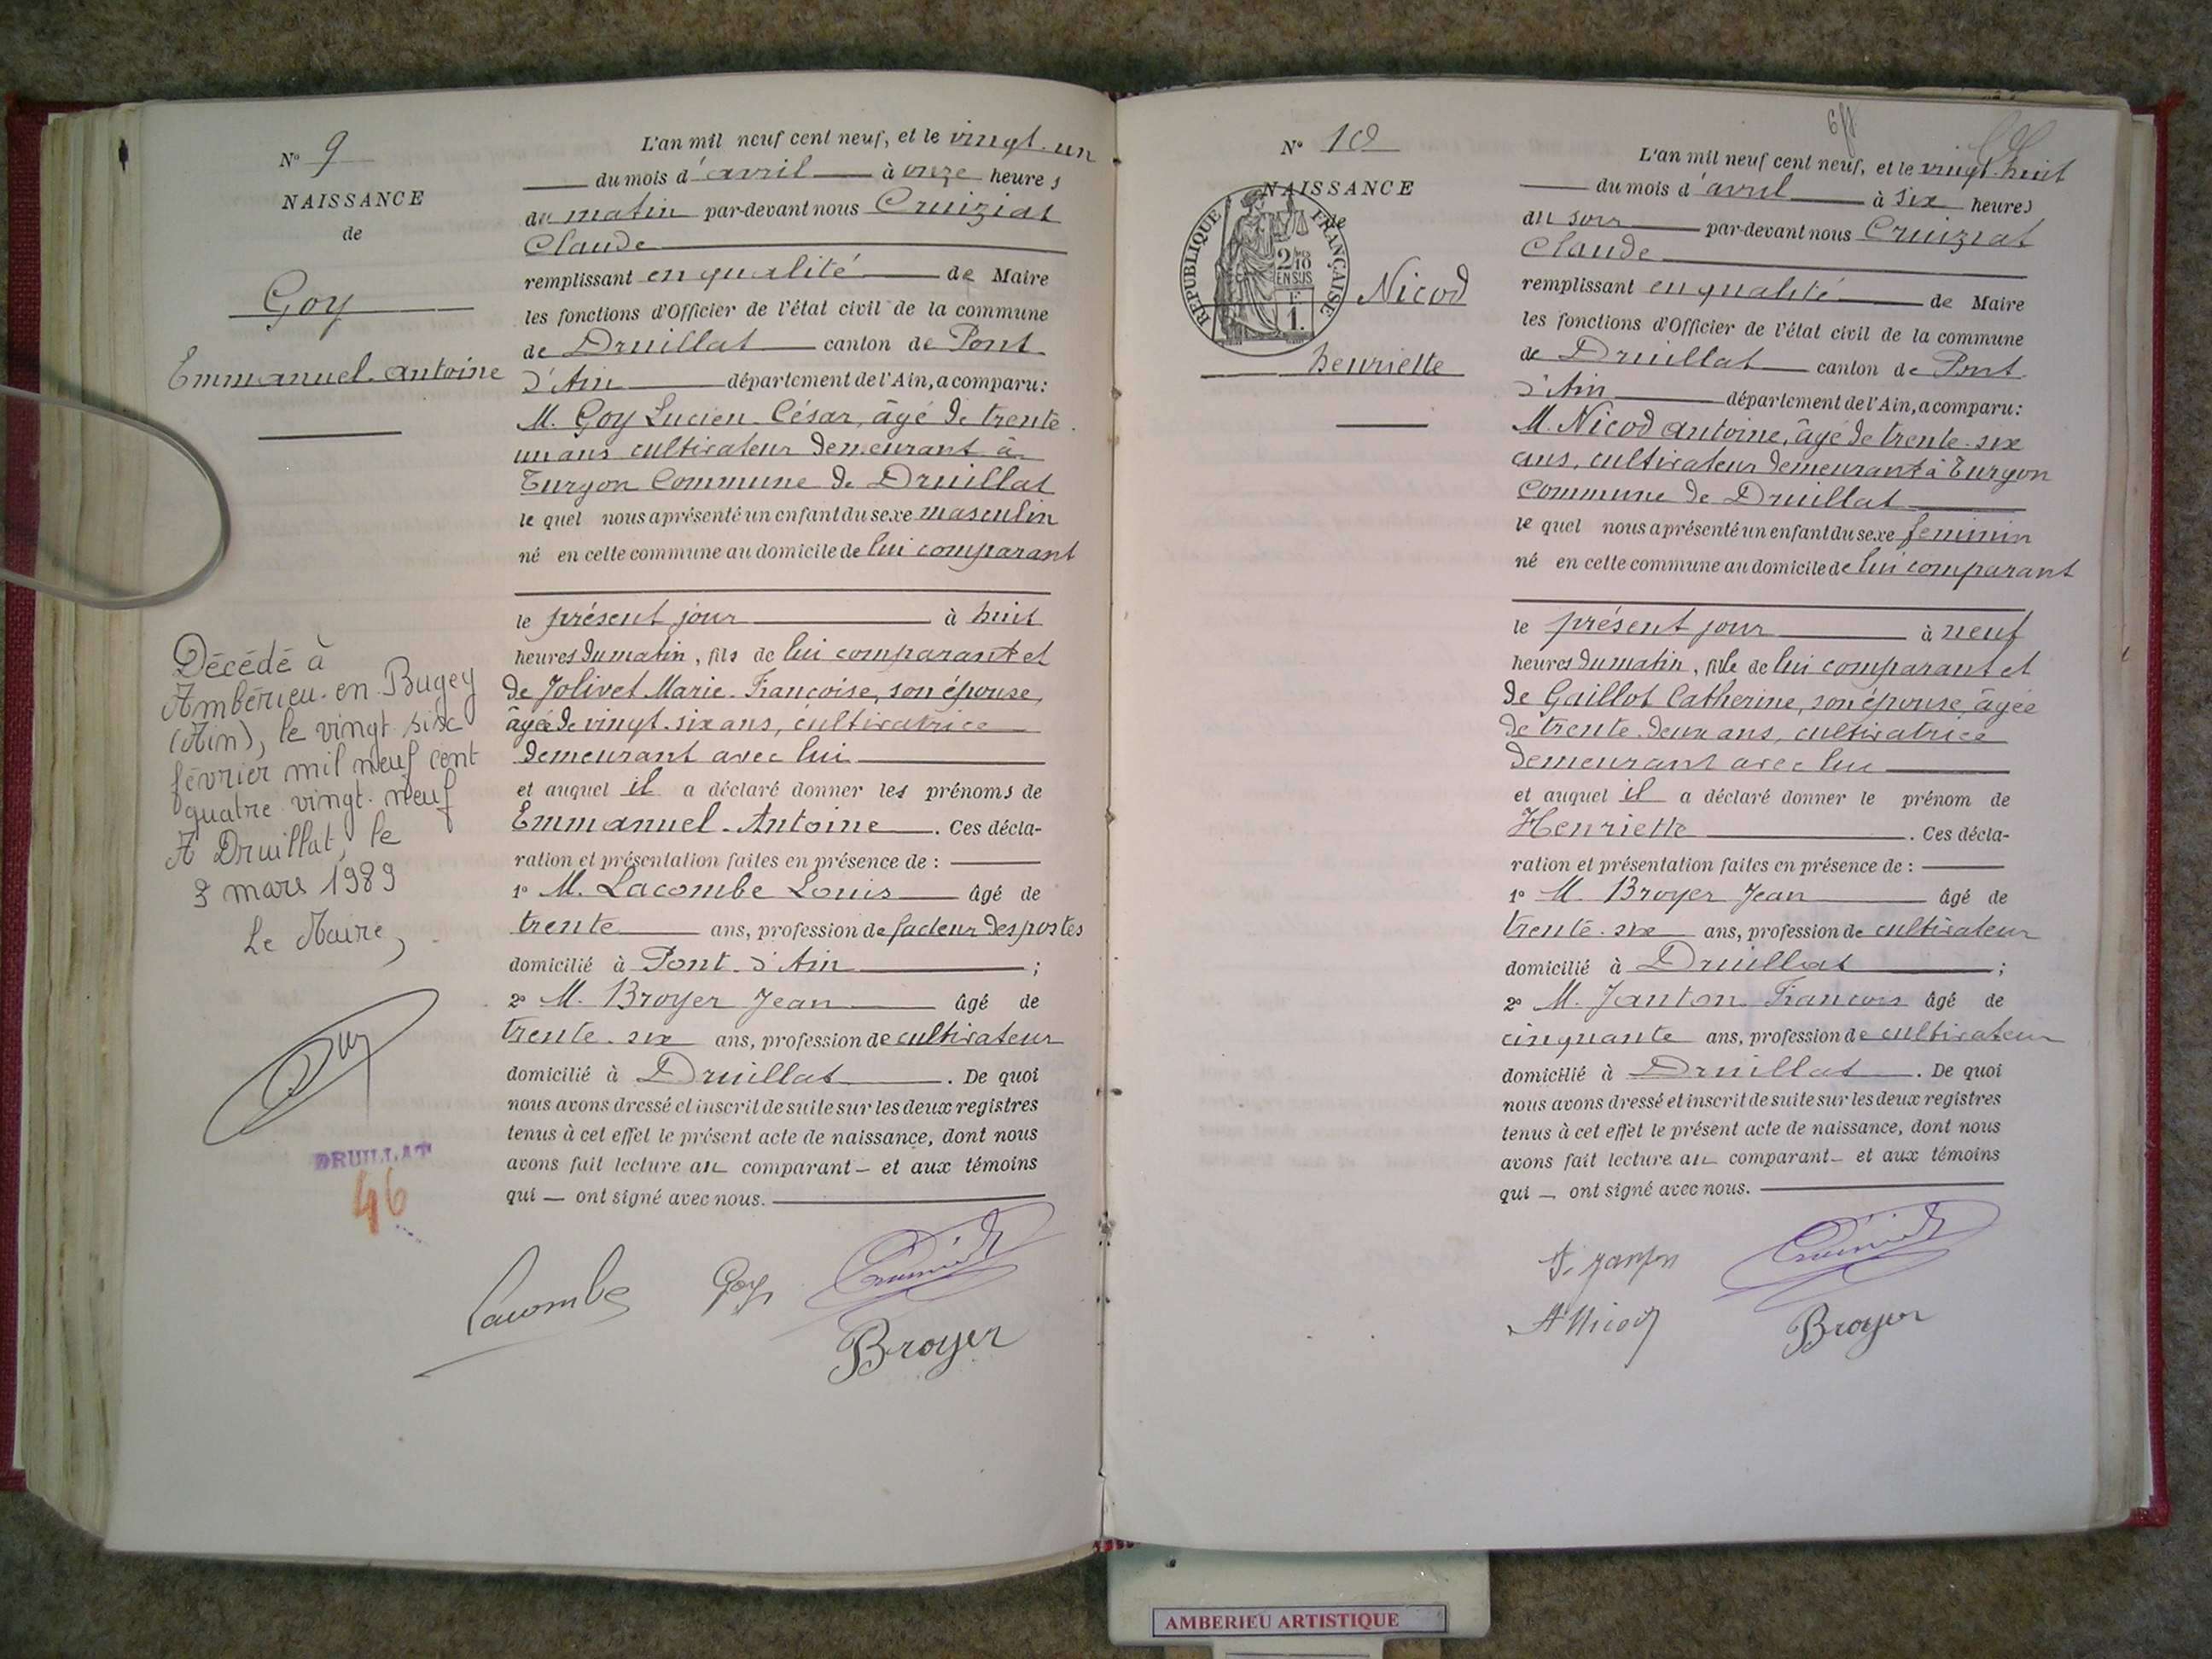 N° 9
NAISSANCE
de
Goy
Emmanuel-Antoine
Décédé à
Ambérieu-en-Bugey
(Ain), le vingt-six
février mil neuf cent
quatre-vingt-neuf
A Druillat, le
3 mars 1989
Le Maire,
DRUILLAT
46
L'an mil neuf cent neuf, et le vingt-un
du mois d'avril à onze heures
du matin par-devant nous Cruiziat
Claude
remplissant en qualité de Maire
les fonctions d'Officier de l'état civil de la commune
de Druillat canton de Pont
d'Ain département de l'Ain, a comparu:
M. Goy Lucien-César, âgé de trente-
un ans cultivateur demeurant à
Turgon Commune de Druillat
le quel nous a présenté un enfant du sexe masculin
né en cette commune au domicile de lui comparant
le présent jour à huit
heures du matin, fils de lui comparant et
de Jolivet Marie-Françoise, son épouse,
âgée de vingt-six ans, cultivatrice
demeurant avec lui
et auquel il a déclaré donner les prénoms de
Emmanuel-Antoine. Ces décla-
ration et présentation faites en présence de :
1° M. Lacombe Louis âgé de
trente ans, profession de facteur des postes
domicilié à Pont-d'Ain ;
2° M. Broyer Jean âgé de
trente-six ans, profession de cultivateur
domicilié à Druillat. De quoi
nous avons dressé et inscrit de suite sur les deux registres
tenus à cet effet le présent acte de naissance, dont nous
avons fait lecture au comparant - et aux témoins
qui - ont signé avec nous.
Lacombe Goy Cruiziat
Broyer
N° 10
NAISSANCE
de
RÉPUBLIQUE FRANÇAISE
2/10
EN SUS
1 F.
Nicod
henriette
L'an mil neuf cent neuf, et le vingt-huit
du mois d'avril à six heures
du soir par-devant nous Cruiziat
Claude
remplissant en qualité de Maire
les fonctions d'Officier de l'état civil de la commune
de Druillat canton de Pont
d'Ain département de l'Ain, a comparu:
M. Nicod antoine, âgé de trente-six
ans, cultivateur demeurant à Turgon
Commune de Druillat
le quel nous a présenté un enfant du sexe feminin
né en cette commune au domicile de lui comparant
le présent jour à neuf
heures du matin, fille de lui comparant et
de Gaillot Catherine, son épouse, âgée
de trente-deux ans, cultivatrice
demeurant avec lui
et auquel il a déclaré donner le prénom de
Henriette. Ces décla-
ration et présentation faites en présence de :
1° M. Broyer Jean âgé de
trente-six ans, profession de cultivateur
domicilié à Druillat ;
2° M. Janton François âgé de
cinquante ans, profession de cultivateur
domicilié à Druillat. De quoi
nous avons dressé et inscrit de suite sur les deux registres
tenus à cet effet le présent acte de naissance, dont nous
avons fait lecture au comparant - et aux témoins
qui - ont signé avec nous.
F. Janton Cruiziat
A Nicod Broyer
AMBERIEU ARTISTIQUE